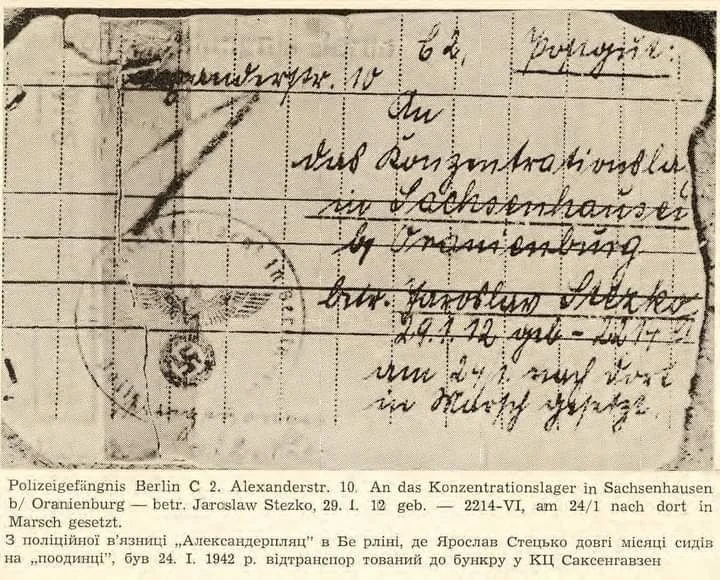 C 2, Postgut:
anderstr. 10
An
das Konzentrationsla
in Sachsenhausen
b/ Oranienburg
betr. Jaroslav Stezko
29.1.12 geb - 2214
am 24/1 nach dort
in Marsch gesetzt.
in Berlin
Polizeigefängnis Berlin C 2. Alexanderstr. 10. An das Konzentrationslager in Sachsenhausen
b/ Oranienburg — betr. Jaroslaw Stezko, 29. I. 12 geb. — 2214-VI, am 24/1 nach dort in
Marsch gesetzt.
З поліційної в'язниці „Александерпляц" в Бе рліні, де Ярослав Стецько довгі місяці сидів
на „поодинці", був 24. I. 1942 р. відтранспор тований до бункру у КЦ Саксенгавзен